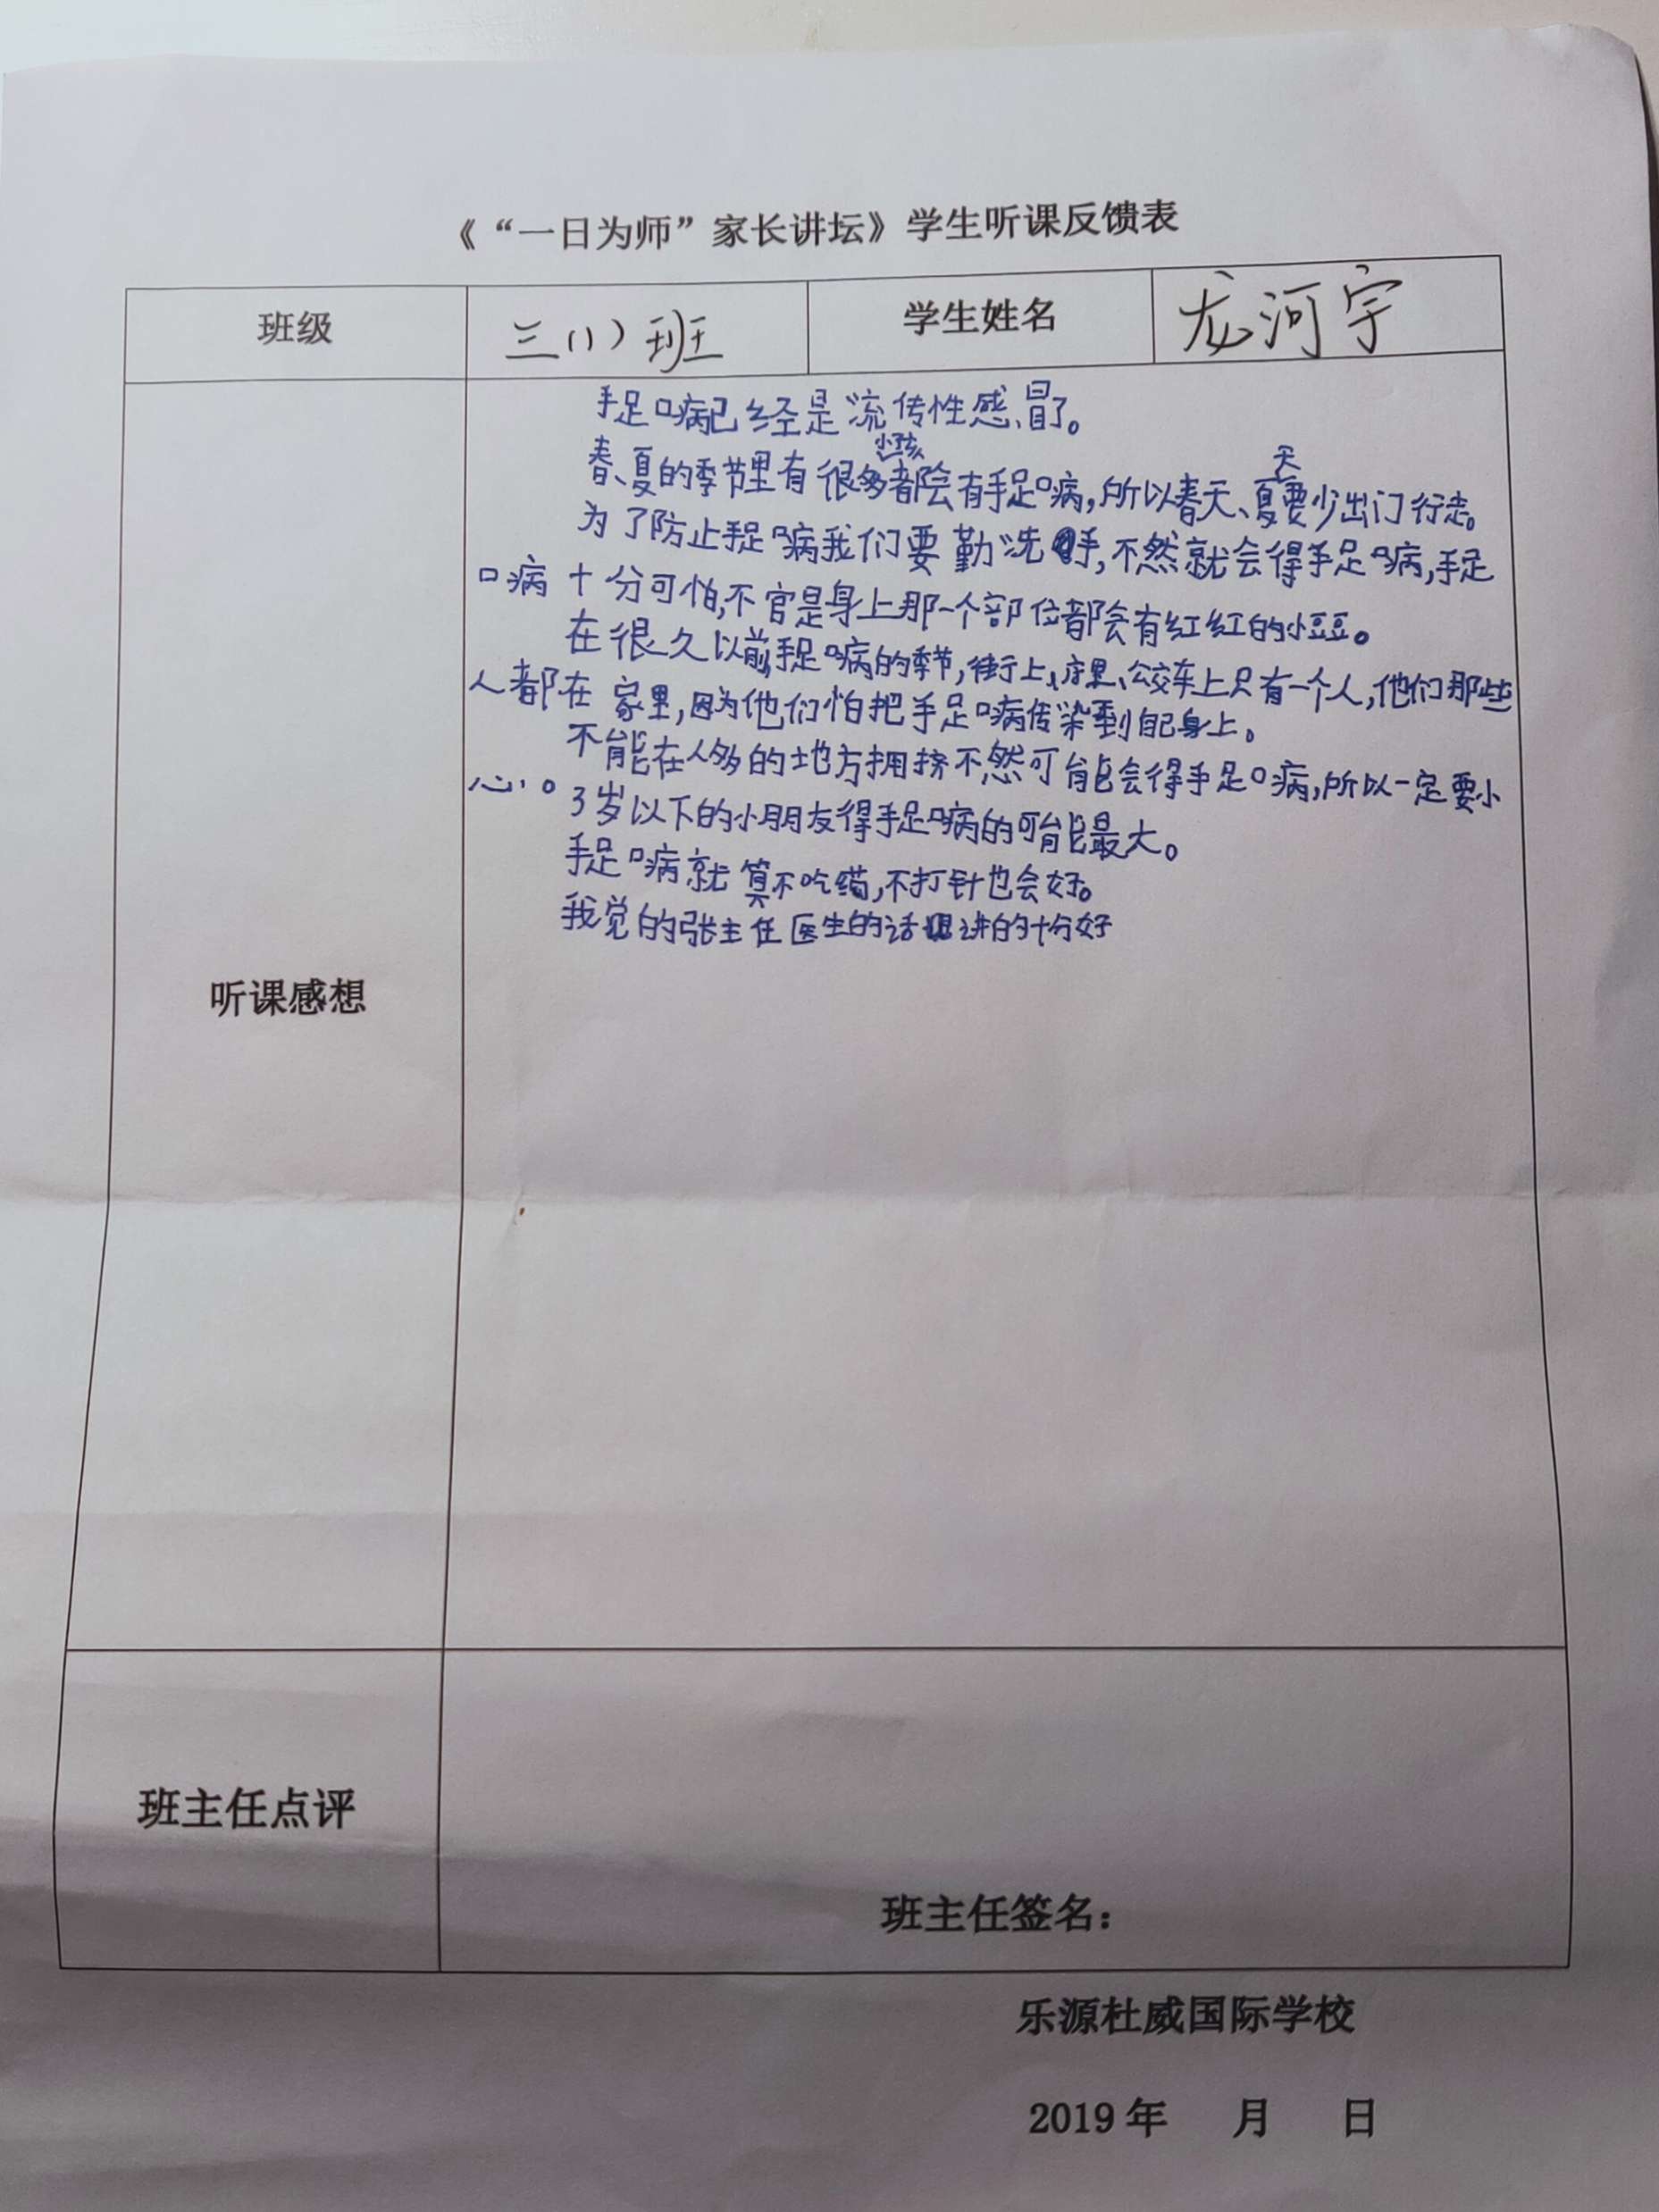 《“一日为师”家长讲坛》学生听课反馈表
班级 三(1)班 学生姓名 龙河宇
手足口病已经是流传性感冒了。
春、夏的季节里有很多小孩都会有手足口病,所以春天、夏天要少出门行走。
为了防止手足口病我们要勤洗手,不然就会得手足口病,手足
口病十分可怕,不官是身上那一个部位都会有红红的小豆豆。
在很久以前,手足口病的季节,街上、店里、公交车上只有一个人,他们那些
人都在家里,因为他们怕把手足口病传染到自己身上。
不能在人多的地方拥挤不然可能会得手足口病,所以一定要小
心。3岁以下的小朋友得手足口病的可能最大。
手足口病就算不吃药,不打针也会好。
我觉的张主任医生的话讲的十分好
听课感想
班主任点评
班主任签名：
乐源杜威国际学校
2019年 月 日